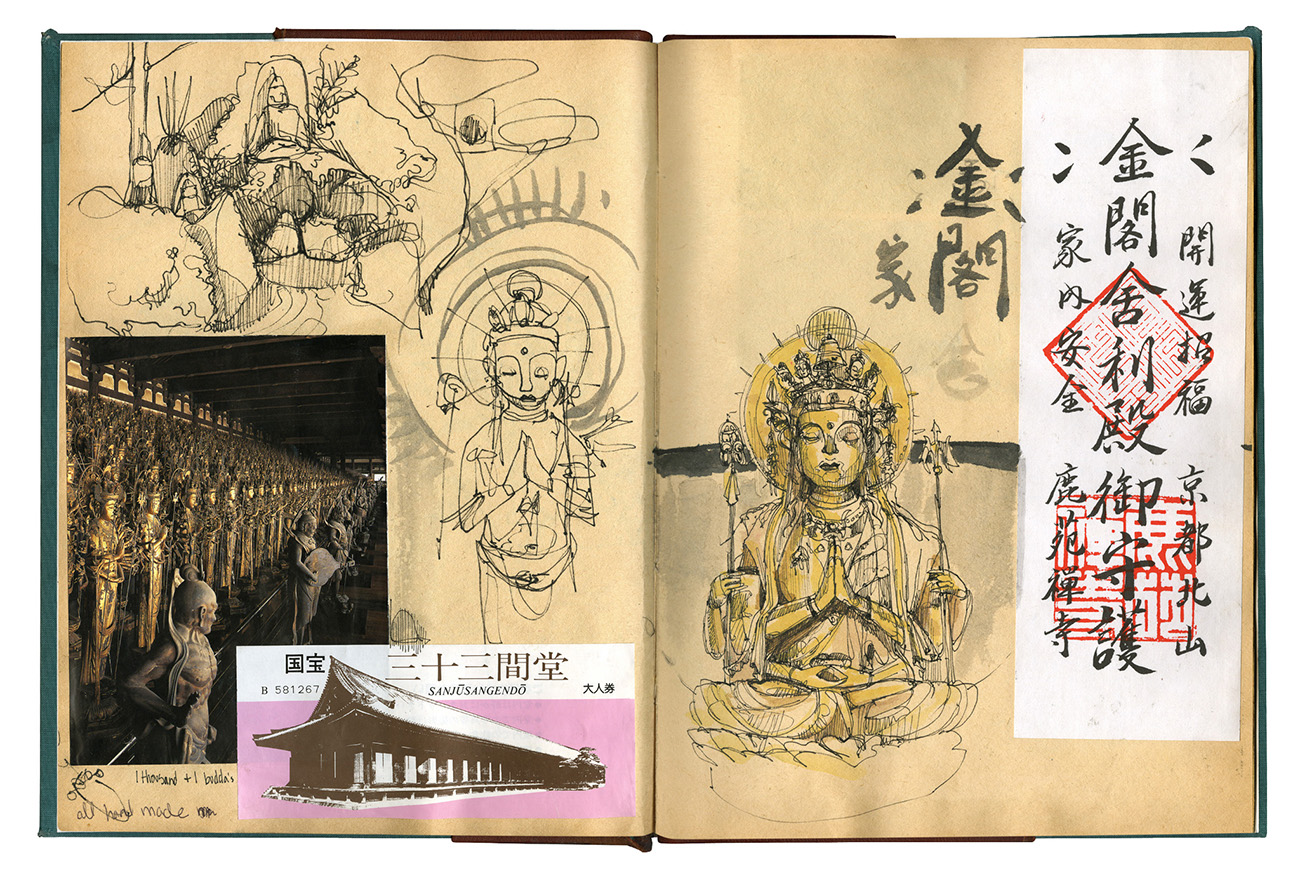 国宝 三十三間堂
B 581267 SANJŪSANGENDŌ 大人券
1 thousand + 1 budda's
all hand made
金閣
家
開運招福 京都北山
金閣舍利殿御守護
家内安全 鹿苑禪寺